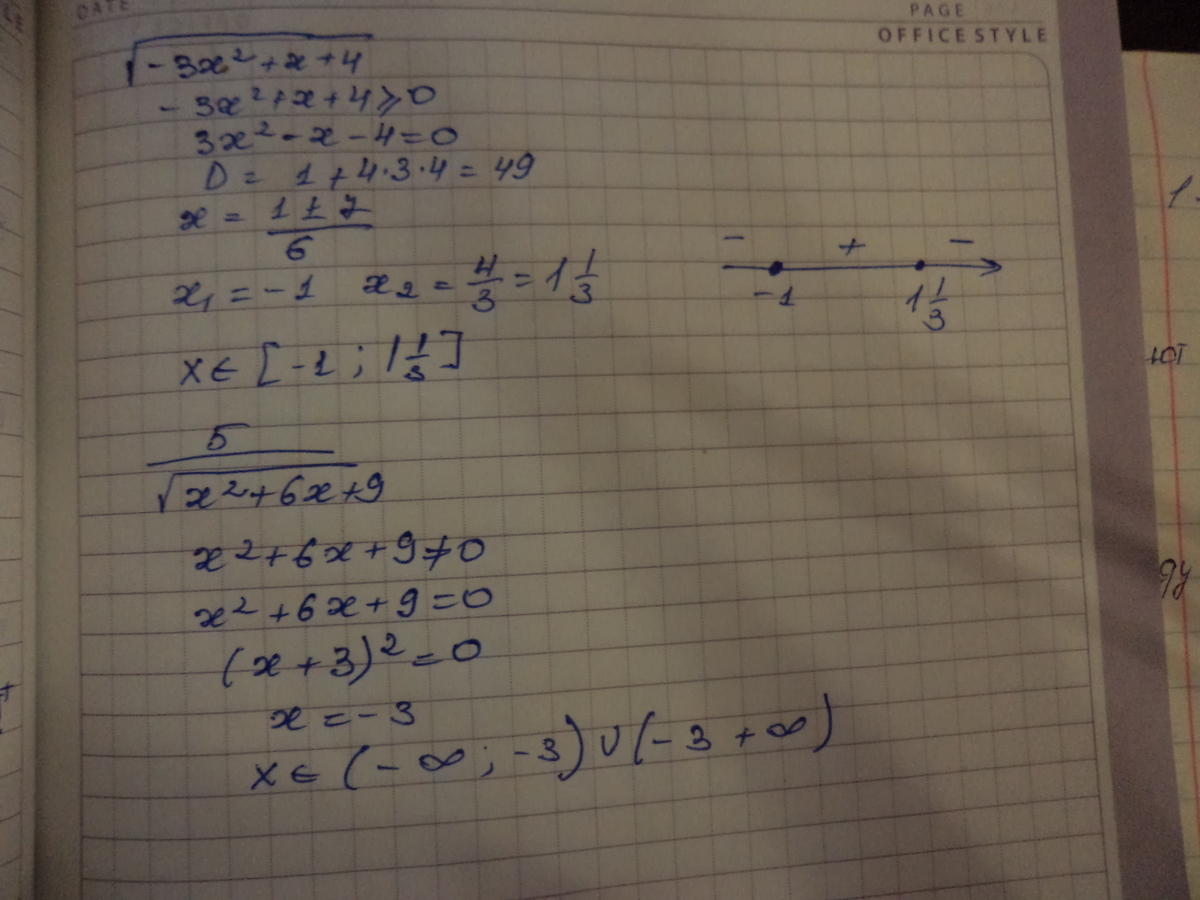 DATE
PAGE
OFFICE STYLE
√-3x²+x+4
-3x²+x+4⩾0
3x²-x-4=0
D = 1+4·3·4=49
x = (1±7)/6
x₁=-1 x₂=4/3=1 1/3
- + -
-1 1 1/3
x∈[-1; 1 1/3]
5/√x²+6x+9
x²+6x+9≠0
x²+6x+9=0
(x+3)²=0
x=-3
x∈(-∞;-3)∪(-3 +∞)
ют